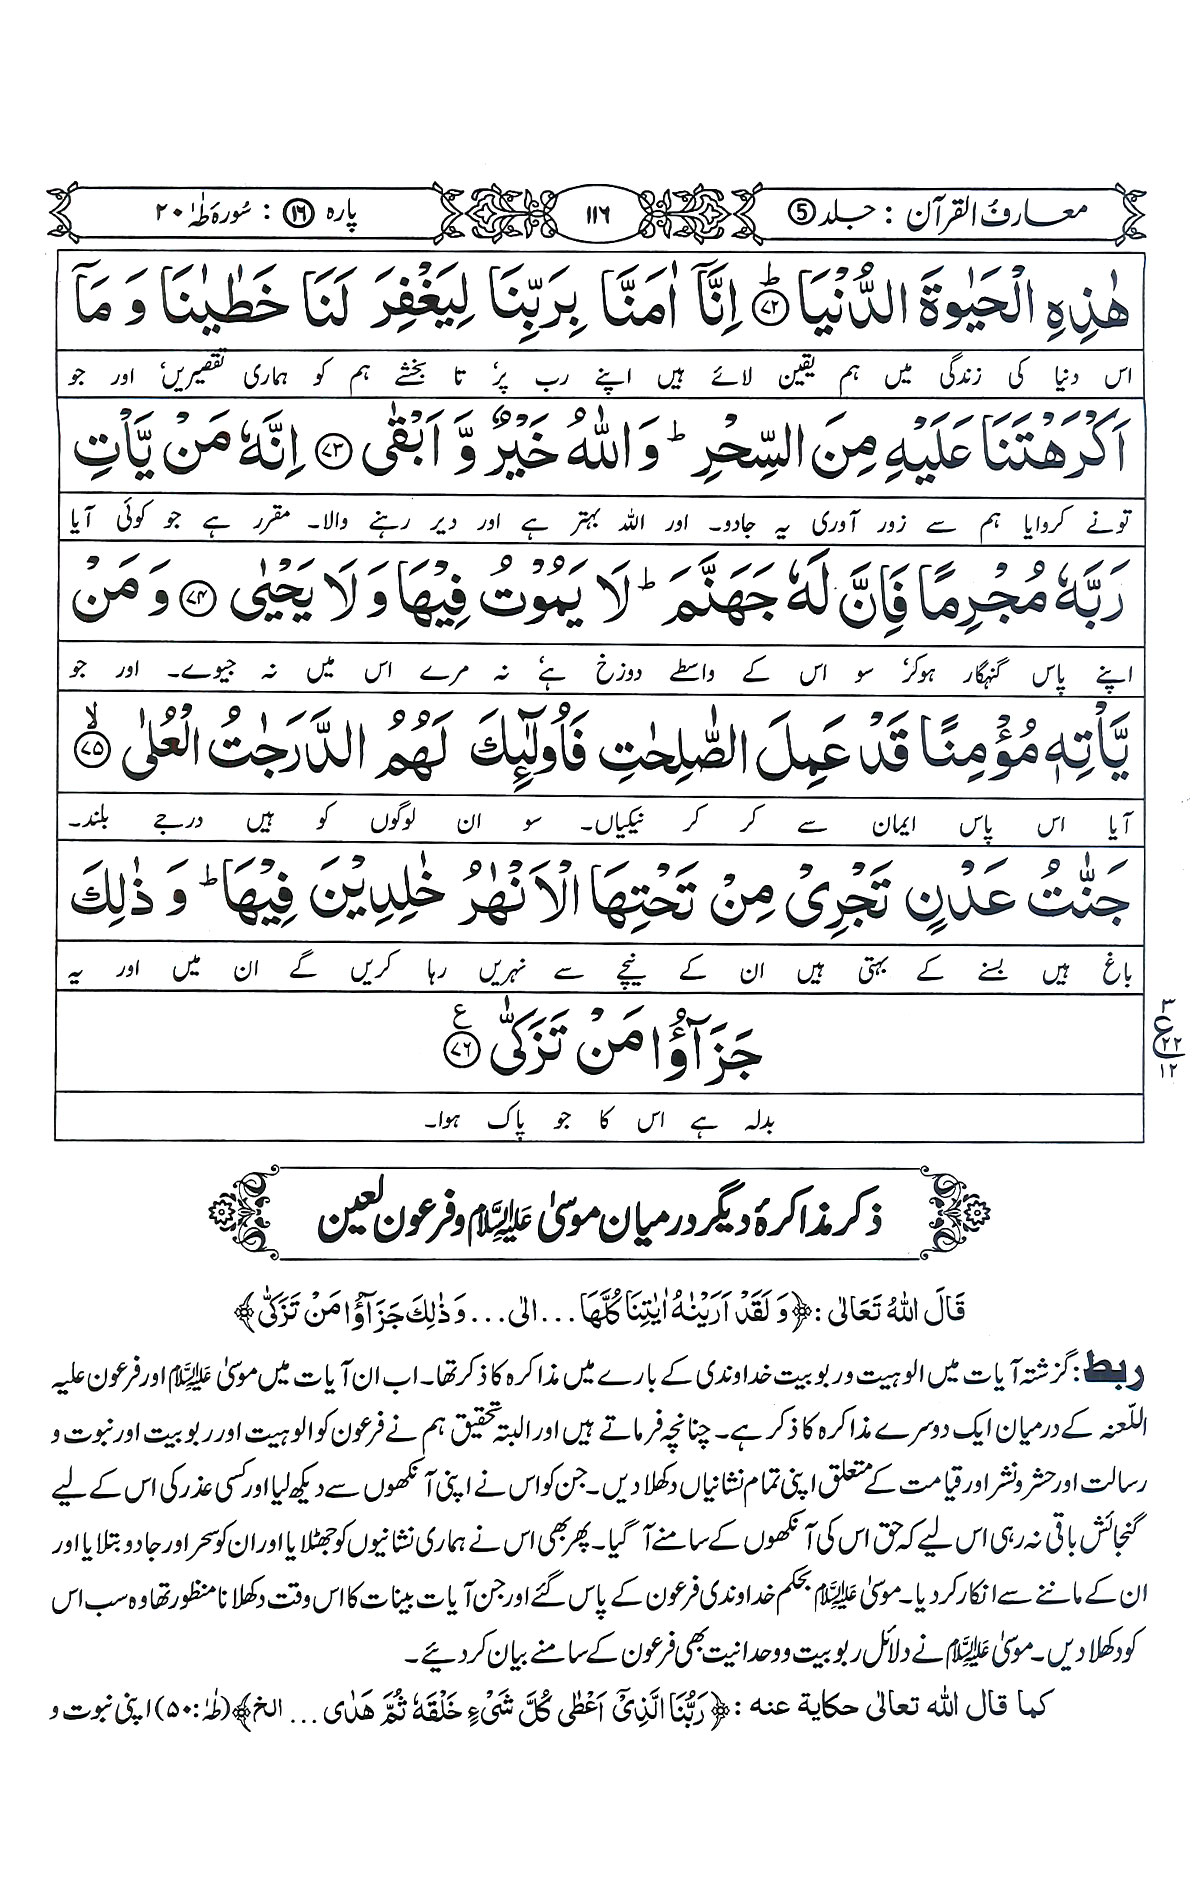 معارف القرآن : جلد ⑤
۱۱۶
پارہ ⑯ : سُورَة طٰهٰ ۲۰
هٰذِهِ الْحَيٰوةَ الدُّنْيَا ؕ ۷۲ اِنَّاۤ اٰمَنَّا بِرَبِّنَا لِيَغْفِرَ لَنَا خَطٰيٰنَا وَ مَاۤ
اس دنیا کی زندگی میں ہم یقین لائے ہیں اپنے رب پر، تا بخشے ہم کو ہماری تقصیریں، اور جو
اَكْرَهْتَنَا عَلَيْهِ مِنَ السِّحْرِ ؕ وَاللّٰهُ خَيْرٌ وَّ اَبْقٰى ۷۳ اِنَّهٗ مَنْ يَّاْتِ
تونے کروایا ہم سے زور آوری یہ جادو۔ اور اللہ بہتر ہے اور دیر رہنے والا۔ مقرر ہے جو کوئی آیا
رَبَّهٗ مُجْرِمًا فَاِنَّ لَهٗ جَهَنَّمَ ؕ لَا يَمُوْتُ فِيْهَا وَلَا يَحْيٰى ۷۴ وَ مَنْ
اپنے پاس گنہگار ہوکر، سو اس کے واسطے دوزخ ہے، نہ مرے اس میں نہ جیوے۔ اور جو
يَّاْتِهٖ مُؤْمِنًا قَدْ عَمِلَ الصّٰلِحٰتِ فَاُولٰٓئِكَ لَهُمُ الدَّرَجٰتُ الْعُلٰى ۙ ۷۵
آیا اس پاس ایمان سے کر کر نیکیاں۔ سو ان لوگوں کو ہیں درجے بلند۔
جَنّٰتُ عَدْنٍ تَجْرِىْ مِنْ تَحْتِهَا الْاَنْهٰرُ خٰلِدِيْنَ فِيْهَا ؕ وَ ذٰلِكَ
باغ ہیں بسنے کے بہتی ہیں ان کے نیچے سے نہریں رہا کریں گے ان میں اور یہ
جَزٰٓؤُا مَنْ تَزَكّٰى ۷۶ ع
۳ ع ۲۲ ۱۲
بدلہ ہے اس کا جو پاک ہوا۔
ذکر مذاکرۂ دیگر درمیان موسیٰ علیہ السلام و فرعون لعین
قَالَ اللّٰهُ تَعَالٰى : ﴿وَ لَقَدْ اَرَيْنٰهُ اٰيٰتِنَا كُلَّهَا ... الٰی ... وَ ذٰلِكَ جَزٰٓؤُا مَنْ تَزَكّٰى﴾
ربط: گزشتہ آیات میں الوہیت و ربوبیت خداوندی کے بارے میں مذاکرہ کا ذکر تھا۔ اب ان آیات میں موسیٰ علیہ السلام اور فرعون علیہ
اللعنہ کے درمیان ایک دوسرے مذاکرہ کا ذکر ہے۔ چنانچہ فرماتے ہیں اور البتہ تحقیق ہم نے فرعون کو الوہیت اور ربوبیت اور نبوت و
رسالت اور حشر و نشر اور قیامت کے متعلق اپنی تمام نشانیاں دکھلا دیں۔ جن کو اس نے اپنی آنکھوں سے دیکھ لیا اور کسی عذر کی اس کے لیے
گنجائش باقی نہ رہی اس لیے کہ حق اس کی آنکھوں کے سامنے آ گیا۔ پھر بھی اس نے ہماری نشانیوں کو جھٹلایا اور ان کو سحر اور جادو بتلایا اور
ان کے ماننے سے انکار کر دیا۔ موسیٰ علیہ السلام بحکم خداوندی فرعون کے پاس گئے اور جن آیات بینات کا اس وقت دکھلانا منظور تھا وہ سب اس
کو دکھلا دیں۔ موسیٰ علیہ السلام نے دلائل ربوبیت و وحدانیت بھی فرعون کے سامنے بیان کر دیئے۔
كما قال الله تعالى حكاية عنه : ﴿رَبُّنَا الَّذِىْۤ اَعْطٰى كُلَّ شَىْءٍ خَلْقَهٗ ثُمَّ هَدٰى ... الخ﴾ (طٰهٰ: ۵۰) اپنی نبوت و